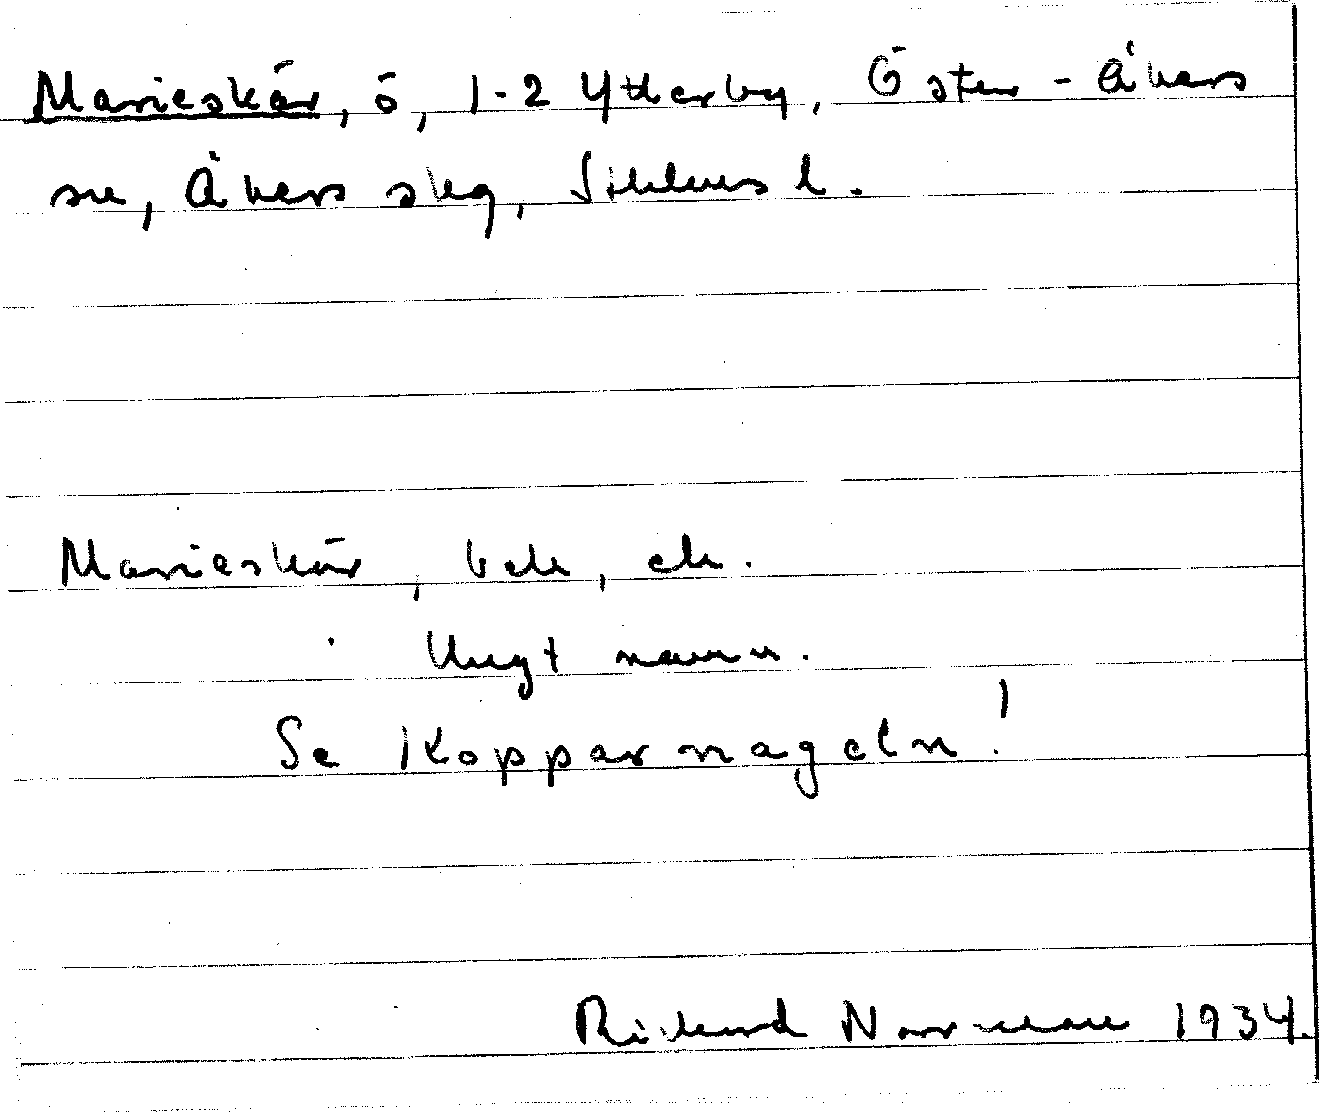 Marieskär, ö, 1-2 Ytterby, Öster-Åkers
sn, Åkers skg, Sthlms l.
Marieskär,
Ungt namn.
Se Kopparnageln!
Rickard Norrman 1934.